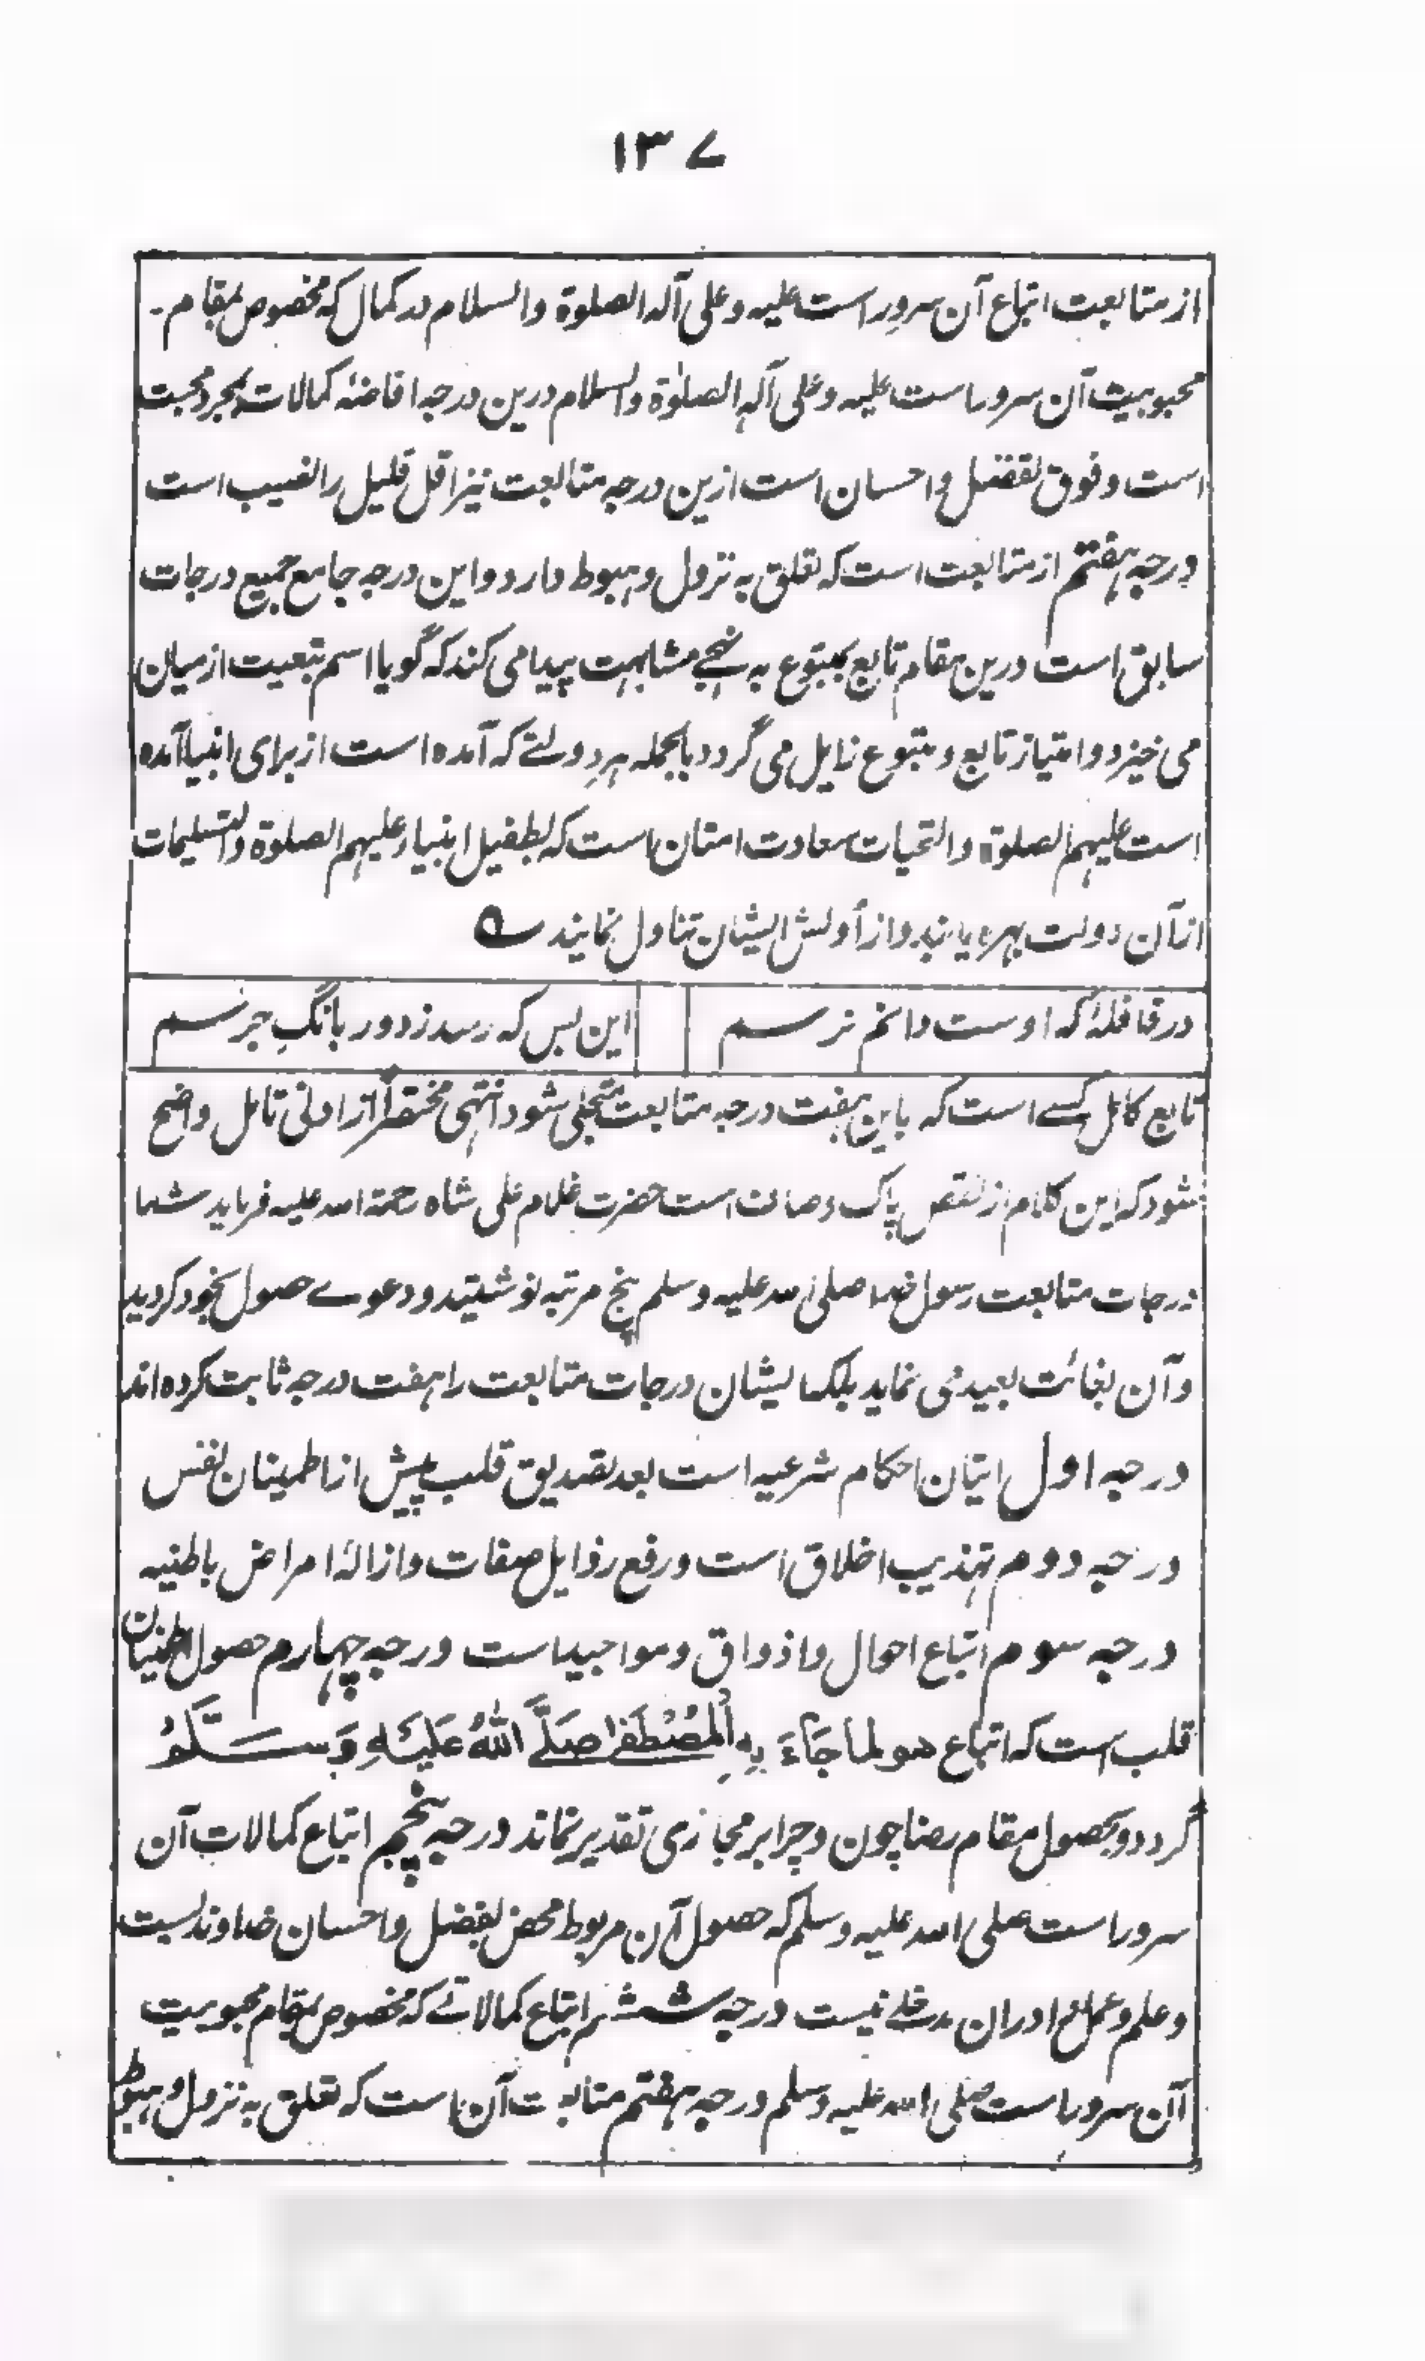 ۱۳۷
از متابعت اتباع آن سرور است علیه وعلی آله الصلوة والسلام در کمال که مخصوص بمقام۔
محبوبیت آن سرور است علیه وعلی آله الصلوٰة والسلام درین درجه افاضهٔ کمالات بمجرد محبت
است وفوق تفضل و احسان است ازین درجه متابعت نیز اقل قلیل را نصیب است
درجه هفتم از متابعت است که تعلق به نزول و هبوط دارد و این درجه جامع جمیع درجات
سابق است درین مقام تابع بمتبوع به نهجے مشابهت پیدا می کند که گویا اسم تبعیت از میان
می خیزد و امتیاز تابع و متبوع زایل می گردد بالجمله هر دولتے که آمده است از برای انبیا آمده
است علیهم الصلوة والتحیات سعادت امتان است که بطفیل انبیاء علیهم الصلوة والتسلیمات
از آن دولت بهره یابند و از اولش ایشان تناول نمایند ؎
در قافلهٔ که اوست دانم نرسم این بس که رسد ز دور بانگِ جرسم
تابع کامل کسے است که باین هفت درجه متابعت متجلی شود انتهی مختصراً از ادنی تامل واضح
شود که این کلام از نقص پاک و صاف است حضرت غلام علی شاه رحمة الله علیه فرماید شما
درجات متابعت رسول خدا صلی الله علیه وسلم پنج مرتبه نوشتید و دعوے حصول بخود کردید
و آن بغائت بعید می نماید بلکه ایشان درجات متابعت را هفت درجه ثابت کرده اند
درجه اول اتیان احکام شرعیه است بعد تصدیق قلب پیش از اطمینان نفس
درجه دوم تهذیب اخلاق است و رفع رذایل صفات و ازالهٔ امراض باطنیه
درجه سوم اتباع احوال و اذواق و مواجید است درجه چهارم حصول اطمینان
قلب است که اتباع هو لما جَاءَ بِهِ المُصْطَفیٰ صَلَّی اللهُ عَلَیْهِ وَسَلَّمُ
گردد و بحصول مقام رضا چون و چرا بر مجازی تقدیر نماند درجه پنجم اتباع کمالات آن
سرور است صلی الله علیه وسلم که حصول آن مربوط محض بفضل و احسان خداوندیست
و علم و عمل را در ان مدخلے نیست درجه ششم اتباع کمالاتے که مخصوص بمقام محبوبیت
آن سرور است صلی الله علیه وسلم درجه هفتم متابعت آن است که تعلق به نزول و هبوط